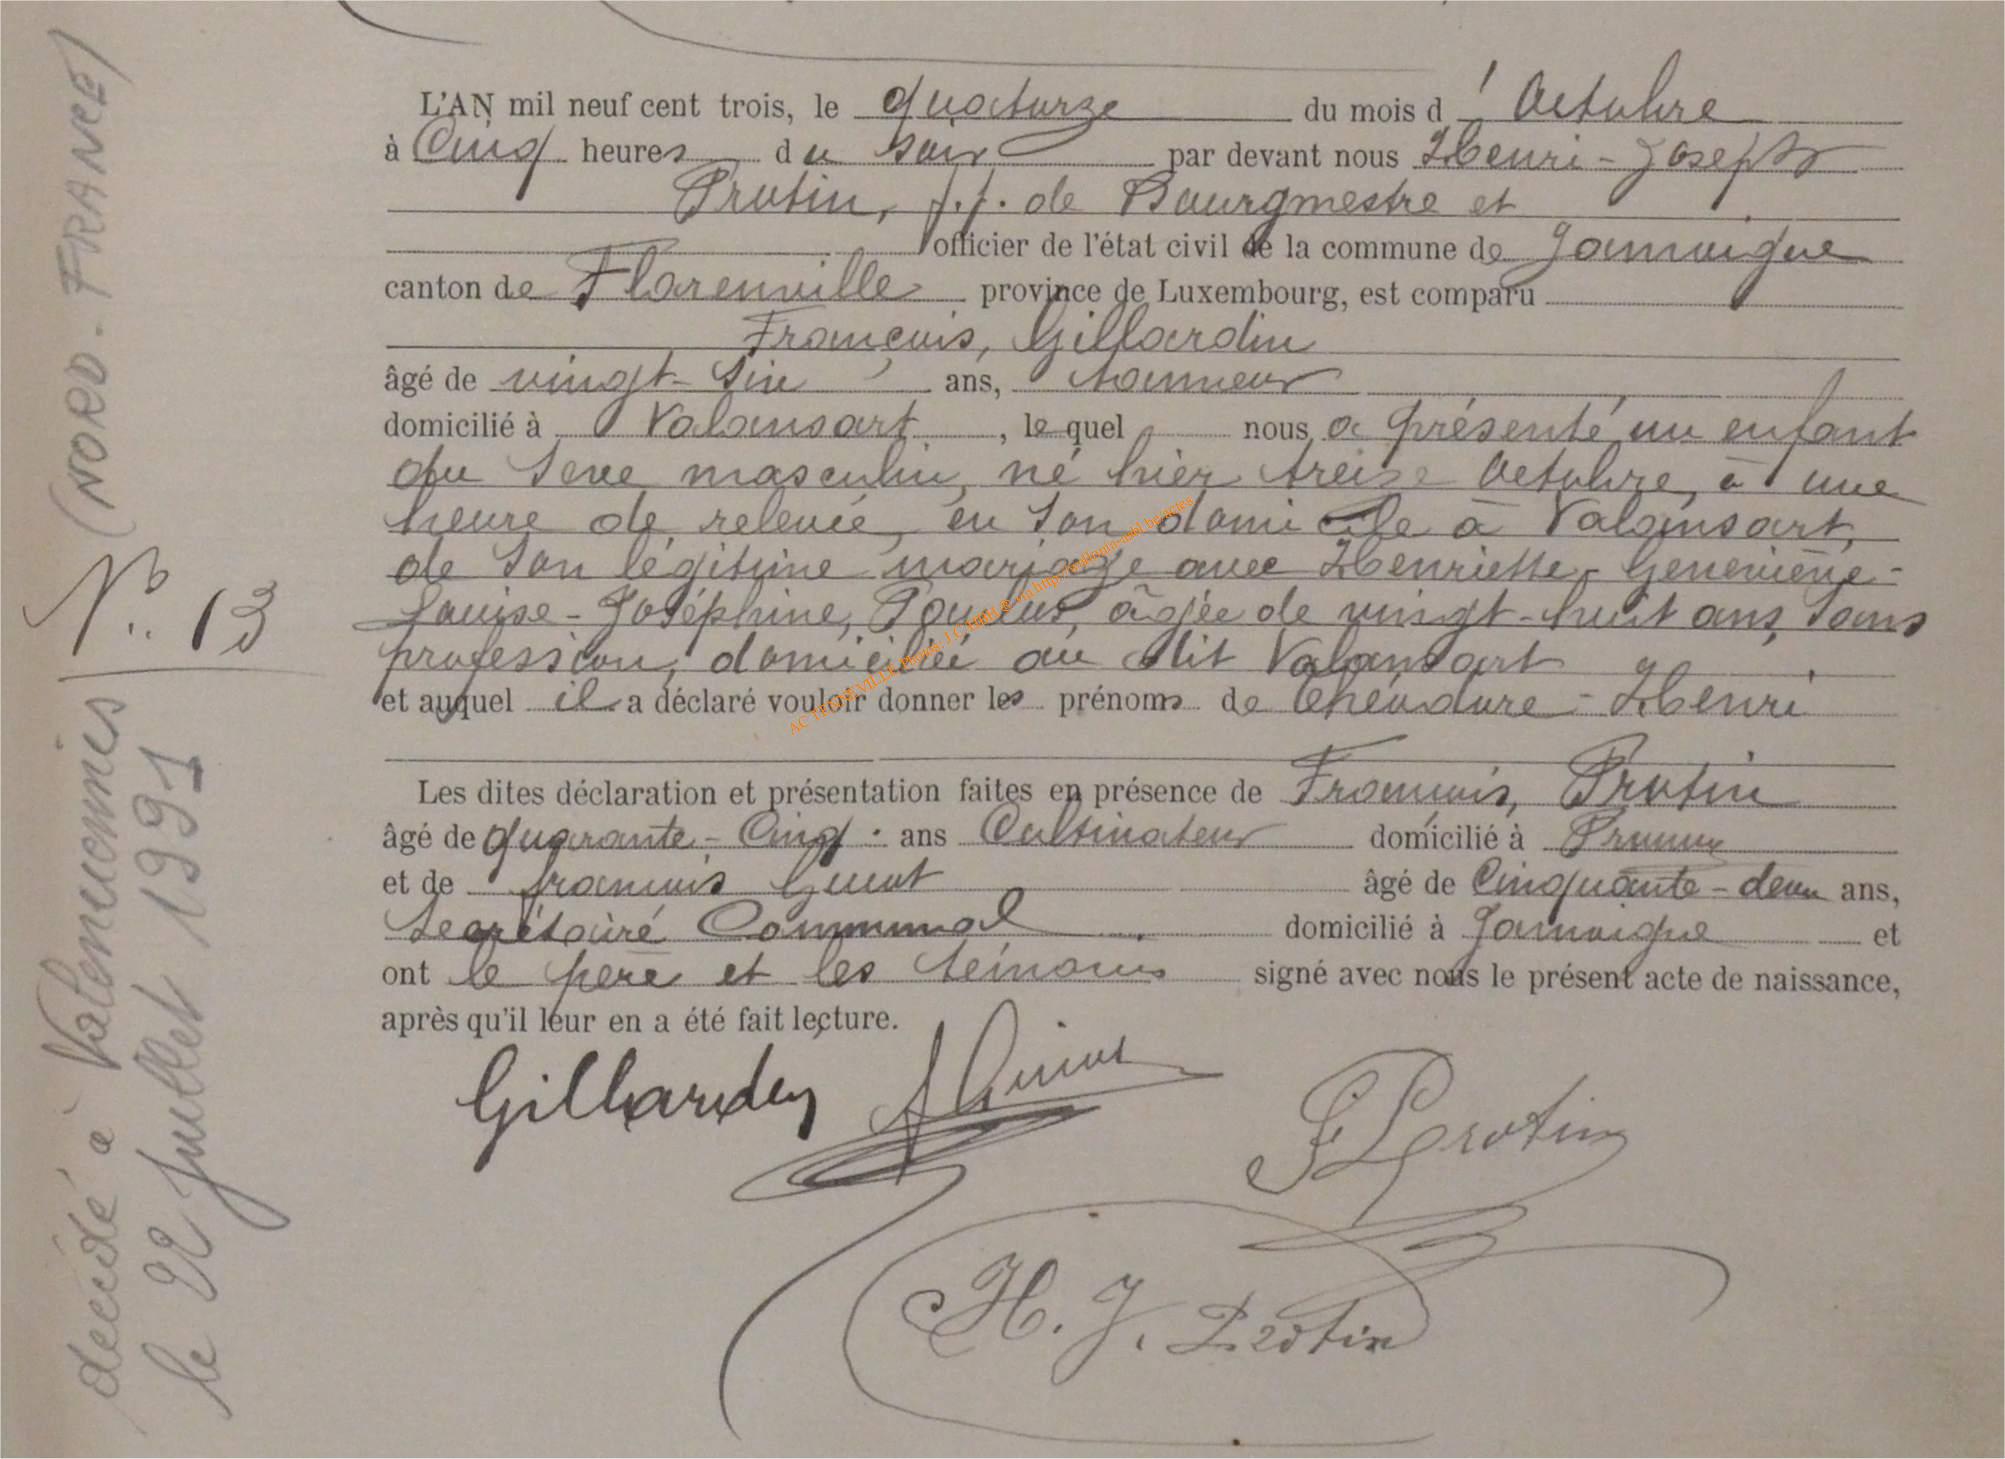 L'AN mil neuf cent trois, le quatorze du mois d'Octobre
à Cinq heures du soir par devant nous Henri-Joseph
Protin, f.f. de Bourgmestre et
officier de l'état civil de la commune de Jamoigne
canton de Florenville province de Luxembourg, est comparu
François, Gillardin
âgé de vingt-six ans, tanneur
domicilié à Valansart, lequel nous a présenté un enfant
du sexe masculin, né hier treize Octobre, à une
heure de relevée, en son domicile à Valansart,
de son légitime mariage avec Henriette-Geneviève-
Louise-Joséphine, âgée de vingt-huit ans, sans
profession, domiciliée au dit Valansart
et auquel il a déclaré vouloir donner les prénoms de Théodore-Henri
Les dites déclaration et présentation faites en présence de François, Protin
âgé de quarante-Cinq ans Cultivateur domicilié à Prouvy
et de françois âgé de Cinquante-deux ans,
Secrétaire Communal domicilié à Jamoigne et
ont le père et les témoins signé avec nous le présent acte de naissance,
après qu'il leur en a été fait lecture.
Gillardin
F Protin
H. J. Protin
N° 13
décédé à Valenciennes (NORD-FRANCE)
le 22 Juillet 1991